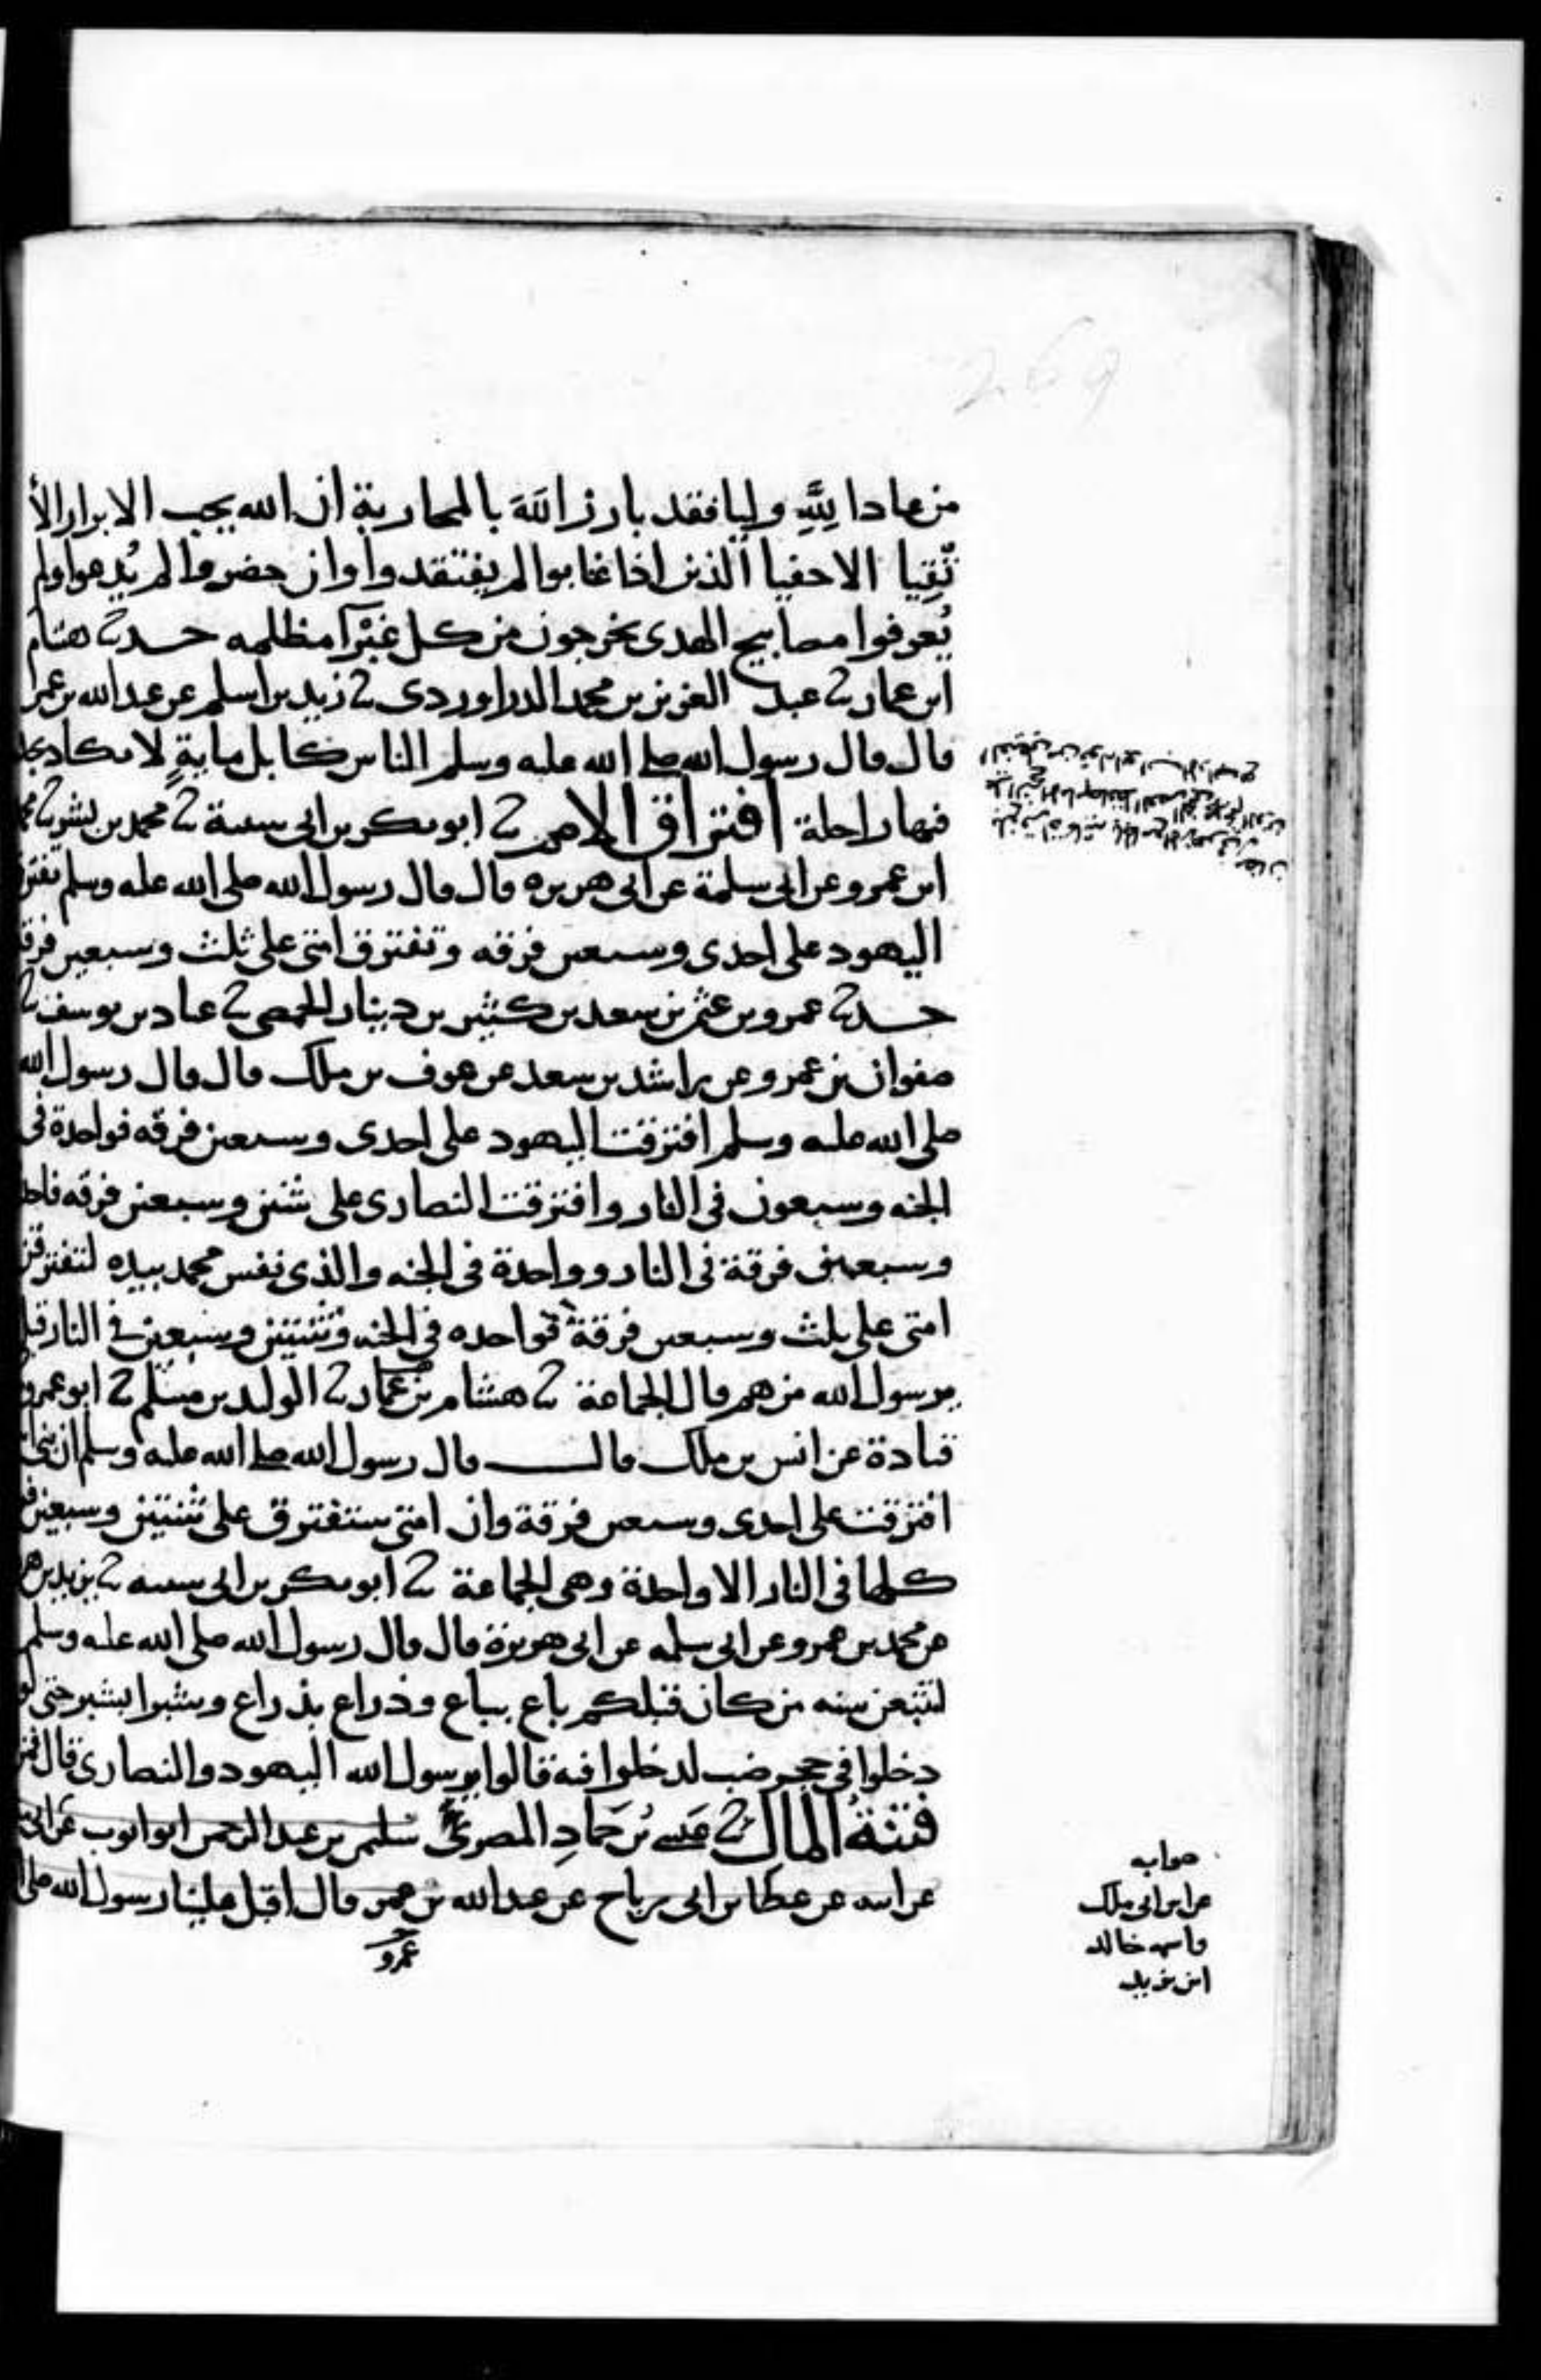 من عادا لله وليا فقد بارز الله بالمحاربة ان الله يحب الابرار الأ
تقيا الاحفيا الذين اذا غابوا لم يفتقدوا وان حضروا لم يدعوا ولم
يعرفوا مصابيح الهدى يخرجون من كل غبرآ مظلمه حدثنا هشام
ابن عمار ثنا عبد العزيز بن محمد الدراوردى ثنا زيد بن اسلم عن عبد الله بن عمر
قال قال رسول الله صلى الله عليه وسلم الناس كابل ماية لا تكاد تجد
فيها راحلة افتراق الامم ثنا ابو بكر بن ابى شيبة ثنا محمد بن بشر ثنا
ابن عمرو عن ابى سلمة عن ابى هريره قال قال رسول الله صلى الله عليه وسلم تفترق
اليهود على احدى وسبعين فرقه وتفترق امتى على ثلث وسبعين فرقة
حدثنا عمرو بن عثمن بن سعيد بن كثير بن دينار الحمصى ثنا عباد بن يوسف ثنا
صفوان بن عمرو عن راشد بن سعد عن عوف بن ملك قال قال رسول الله
صلى الله عليه وسلم افترقت اليهود على احدى وسبعين فرقه فواحدة فى
الجنه وسبعون فى النار وافترقت النصارى على ثنتين وسبعين فرقه
وسبعين فرقة فى النار وواحدة فى الجنه والذى نفس محمد بيده لتفترقن
امتى على ثلث وسبعين فرقة فواحده فى الجنه وثنتين وسبعين فى النار قيل
يرسول الله من هم قال الجماعة ثنا هشام بن عمار ثنا الوليد بن مسلم ثنا ابو عمرو
قتادة عن انس بن ملك قال قال رسول الله صلى الله عليه وسلم ان بنى
افترقت على احدى وسبعين فرقة وان امتى ستفترق على ثنتين وسبعين
كلها فى النار الا واحدة وهى الجماعة ثنا ابو بكر بن ابى شيبه ثنا يزيد بن
عن محمد بن عمرو عن ابى سلمه عن ابى هريرة قال قال رسول الله صلى الله عليه وسلم
لتتبعن سنه من كان قبلكم باع بباع وذراع بذراع وشبرا بشبر حتى لو
دخلوا فى جحر ضب لدخلوا فيه قالوا يرسول الله اليهود والنصارى قال فمن
فتنة المال ثنا عيسى بن حماد المصرى سليمن بن عبد الرحمن ابو ايوب عن ابن
عن ابيه عن عطا بن ابى رباح عن عبد الله بن عمر قال اقبل علينا رسول الله صلى
عمرو
صوابه
عن ابن ابى ملك
واسمه خالد
ابن يزيد